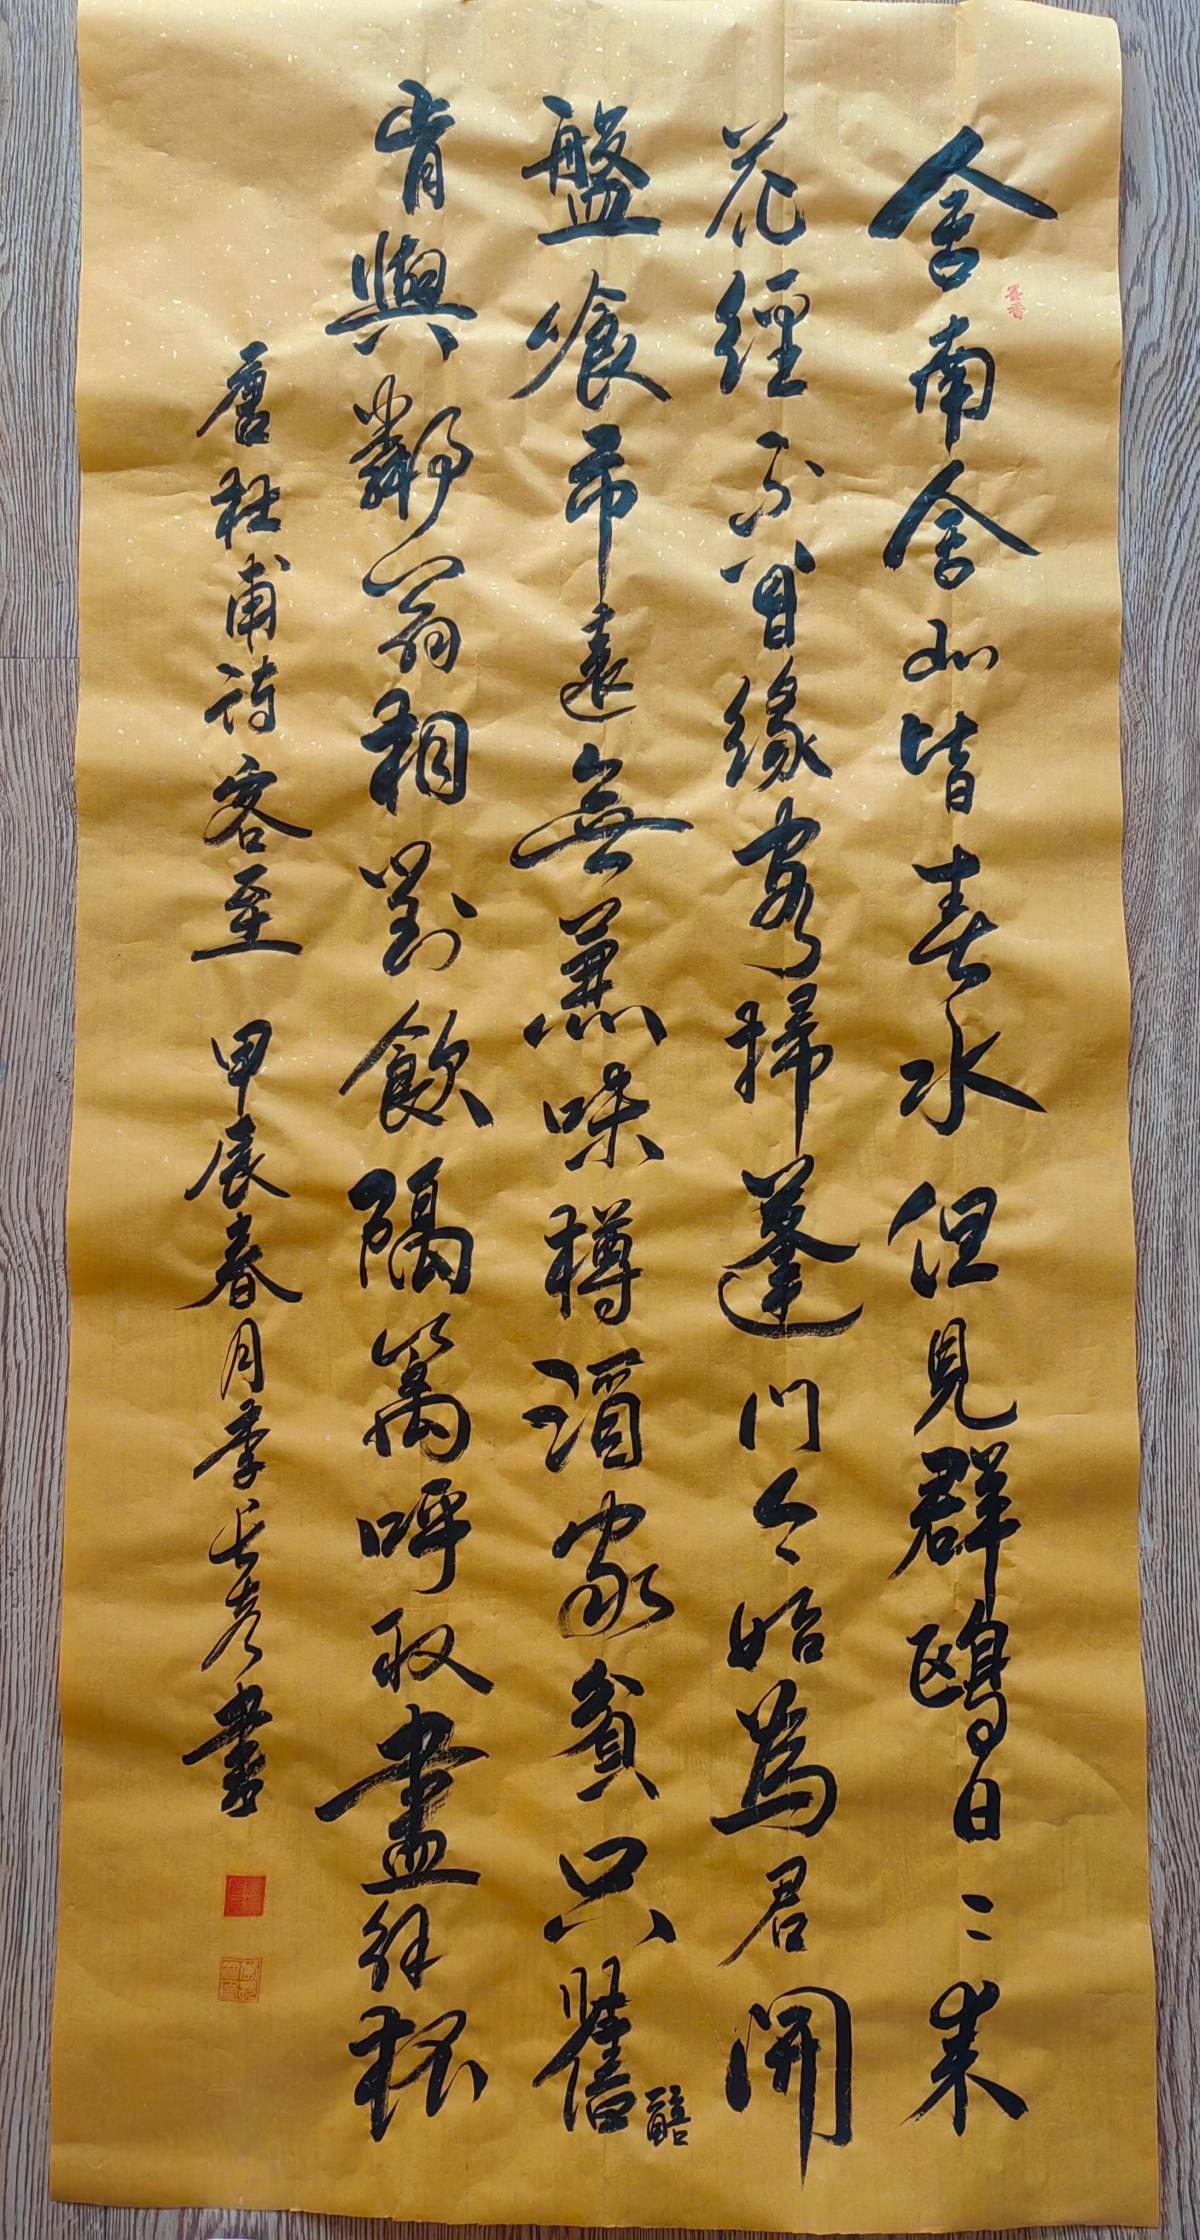 舍南舍北皆春水但見群鷗日〻來
花經不曾緣客掃蓬門今始為君開
盤喰市遠無兼味樽酒家貧只舊醅
肯與鄰翁相對飲隔篱呼取盡餘杯
唐杜甫诗客至 甲辰春月李長彥書
墨香